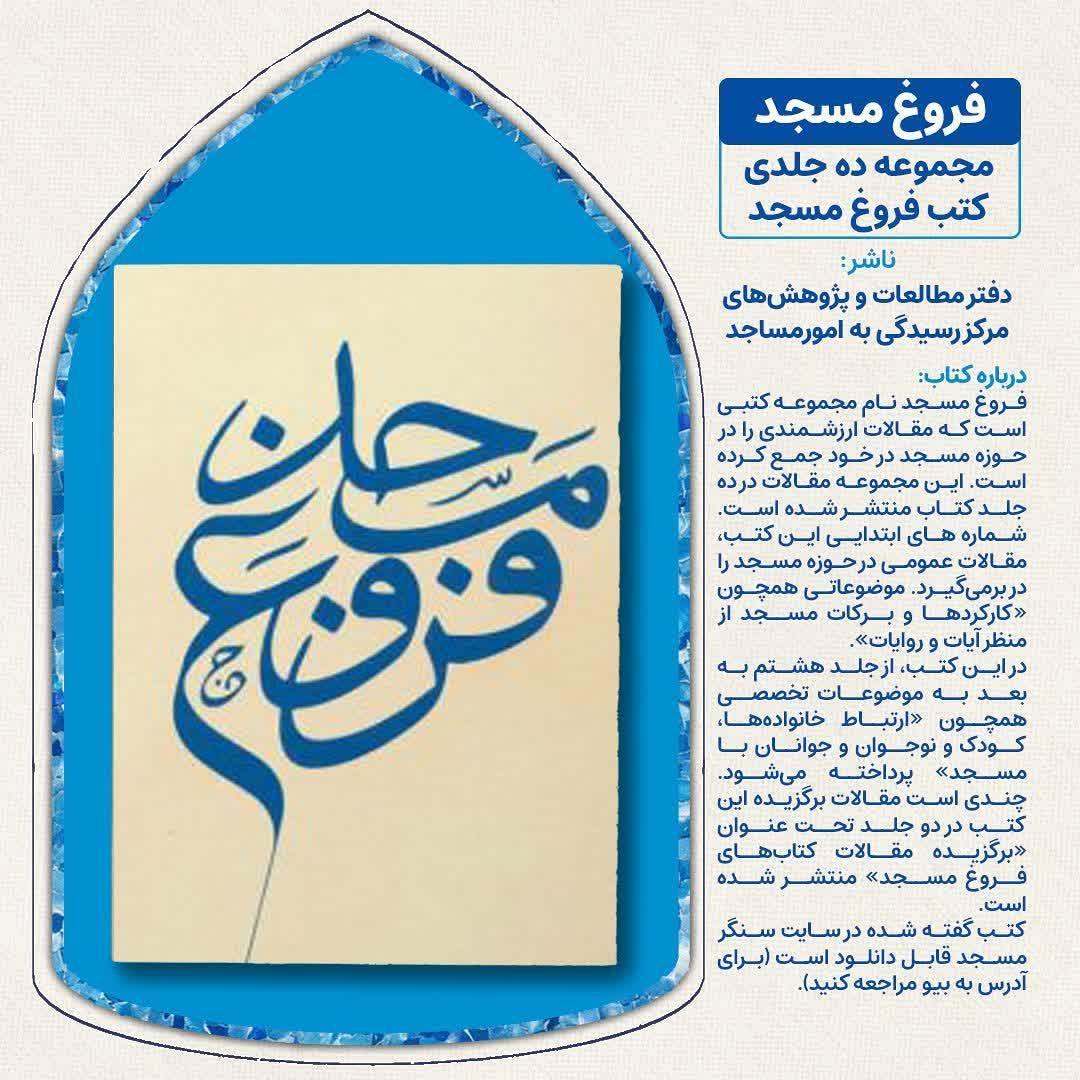 فروغ مسجد
مجموعه ده جلدی
کتب فروغ مسجد
ناشر:
دفتر مطالعات و پژوهش‌های
مرکز رسیدگی به امور مساجد
درباره کتاب:
فروغ مسجد نام مجموعه کتبی
است که مقالات ارزشمندی را در
حوزه مسجد در خود جمع کرده
است. این مجموعه مقالات در ده
جلد کتاب منتشر شده است.
شماره های ابتدایی این کتب،
مقالات عمومی در حوزه مسجد را
در برمی‌گیرد. موضوعاتی همچون
«کارکردها و برکات مسجد از
منظر آیات و روایات».
در این کتب، از جلد هشتم به
بعد به موضوعات تخصصی
همچون «ارتباط خانواده‌ها،
کودک و نوجوان و جوانان با
مسجد» پرداخته می‌شود.
چندی است مقالات برگزیده این
کتب در دو جلد تحت عنوان
«برگزیده مقالات کتاب‌های
فروغ مسجد» منتشر شده
است.
کتب گفته شده در سایت سنگر
مسجد قابل دانلود است (برای
آدرس به بیو مراجعه کنید).